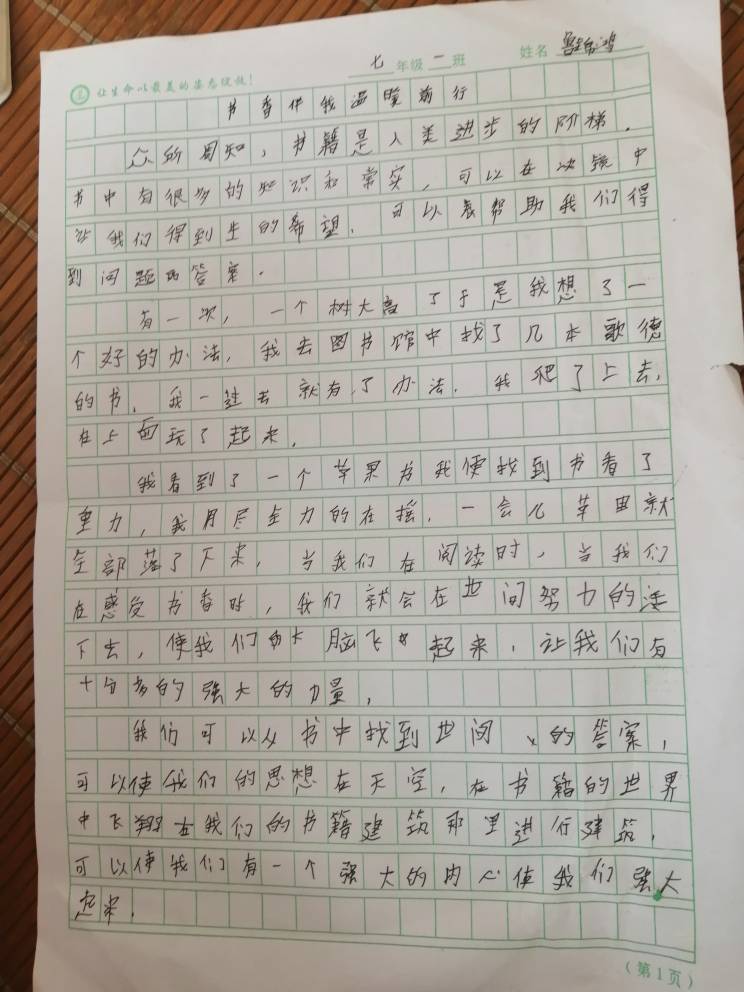 让生命以最美的姿态绽放！
七年级一班 姓名
书香伴我温暖前行
众所周知，书籍是人类进步的阶梯．
书中有很多的知识和常实，可以在决镜中
让我们得到生的希望．可以表帮助我们得
到问题的答案．
有一次，一个树大高了于是我想了一
个好的办法，我去图书馆中找了几本歌德
的书，我一进去就有了办法．我爬了上去，
在上面玩了起来．
我看到了一个苹果书我便找到书看了
重力，我用尽全力的在摇．一会儿苹果就
全部落了下来，当我们在阅读时，当我们
在感受书香时，我们就会在世间努力的活
下去，使我们的大脑飞起来，让我们有
十分多的强大的力量，
我们可以从书中找到世间的答案，
可以使我们的思想在天空，在书籍的世界
中飞翔在我们的书籍建筑那里进行建筑，
可以使我们有一个强大的内心使我们强大
起来．
（第1页）